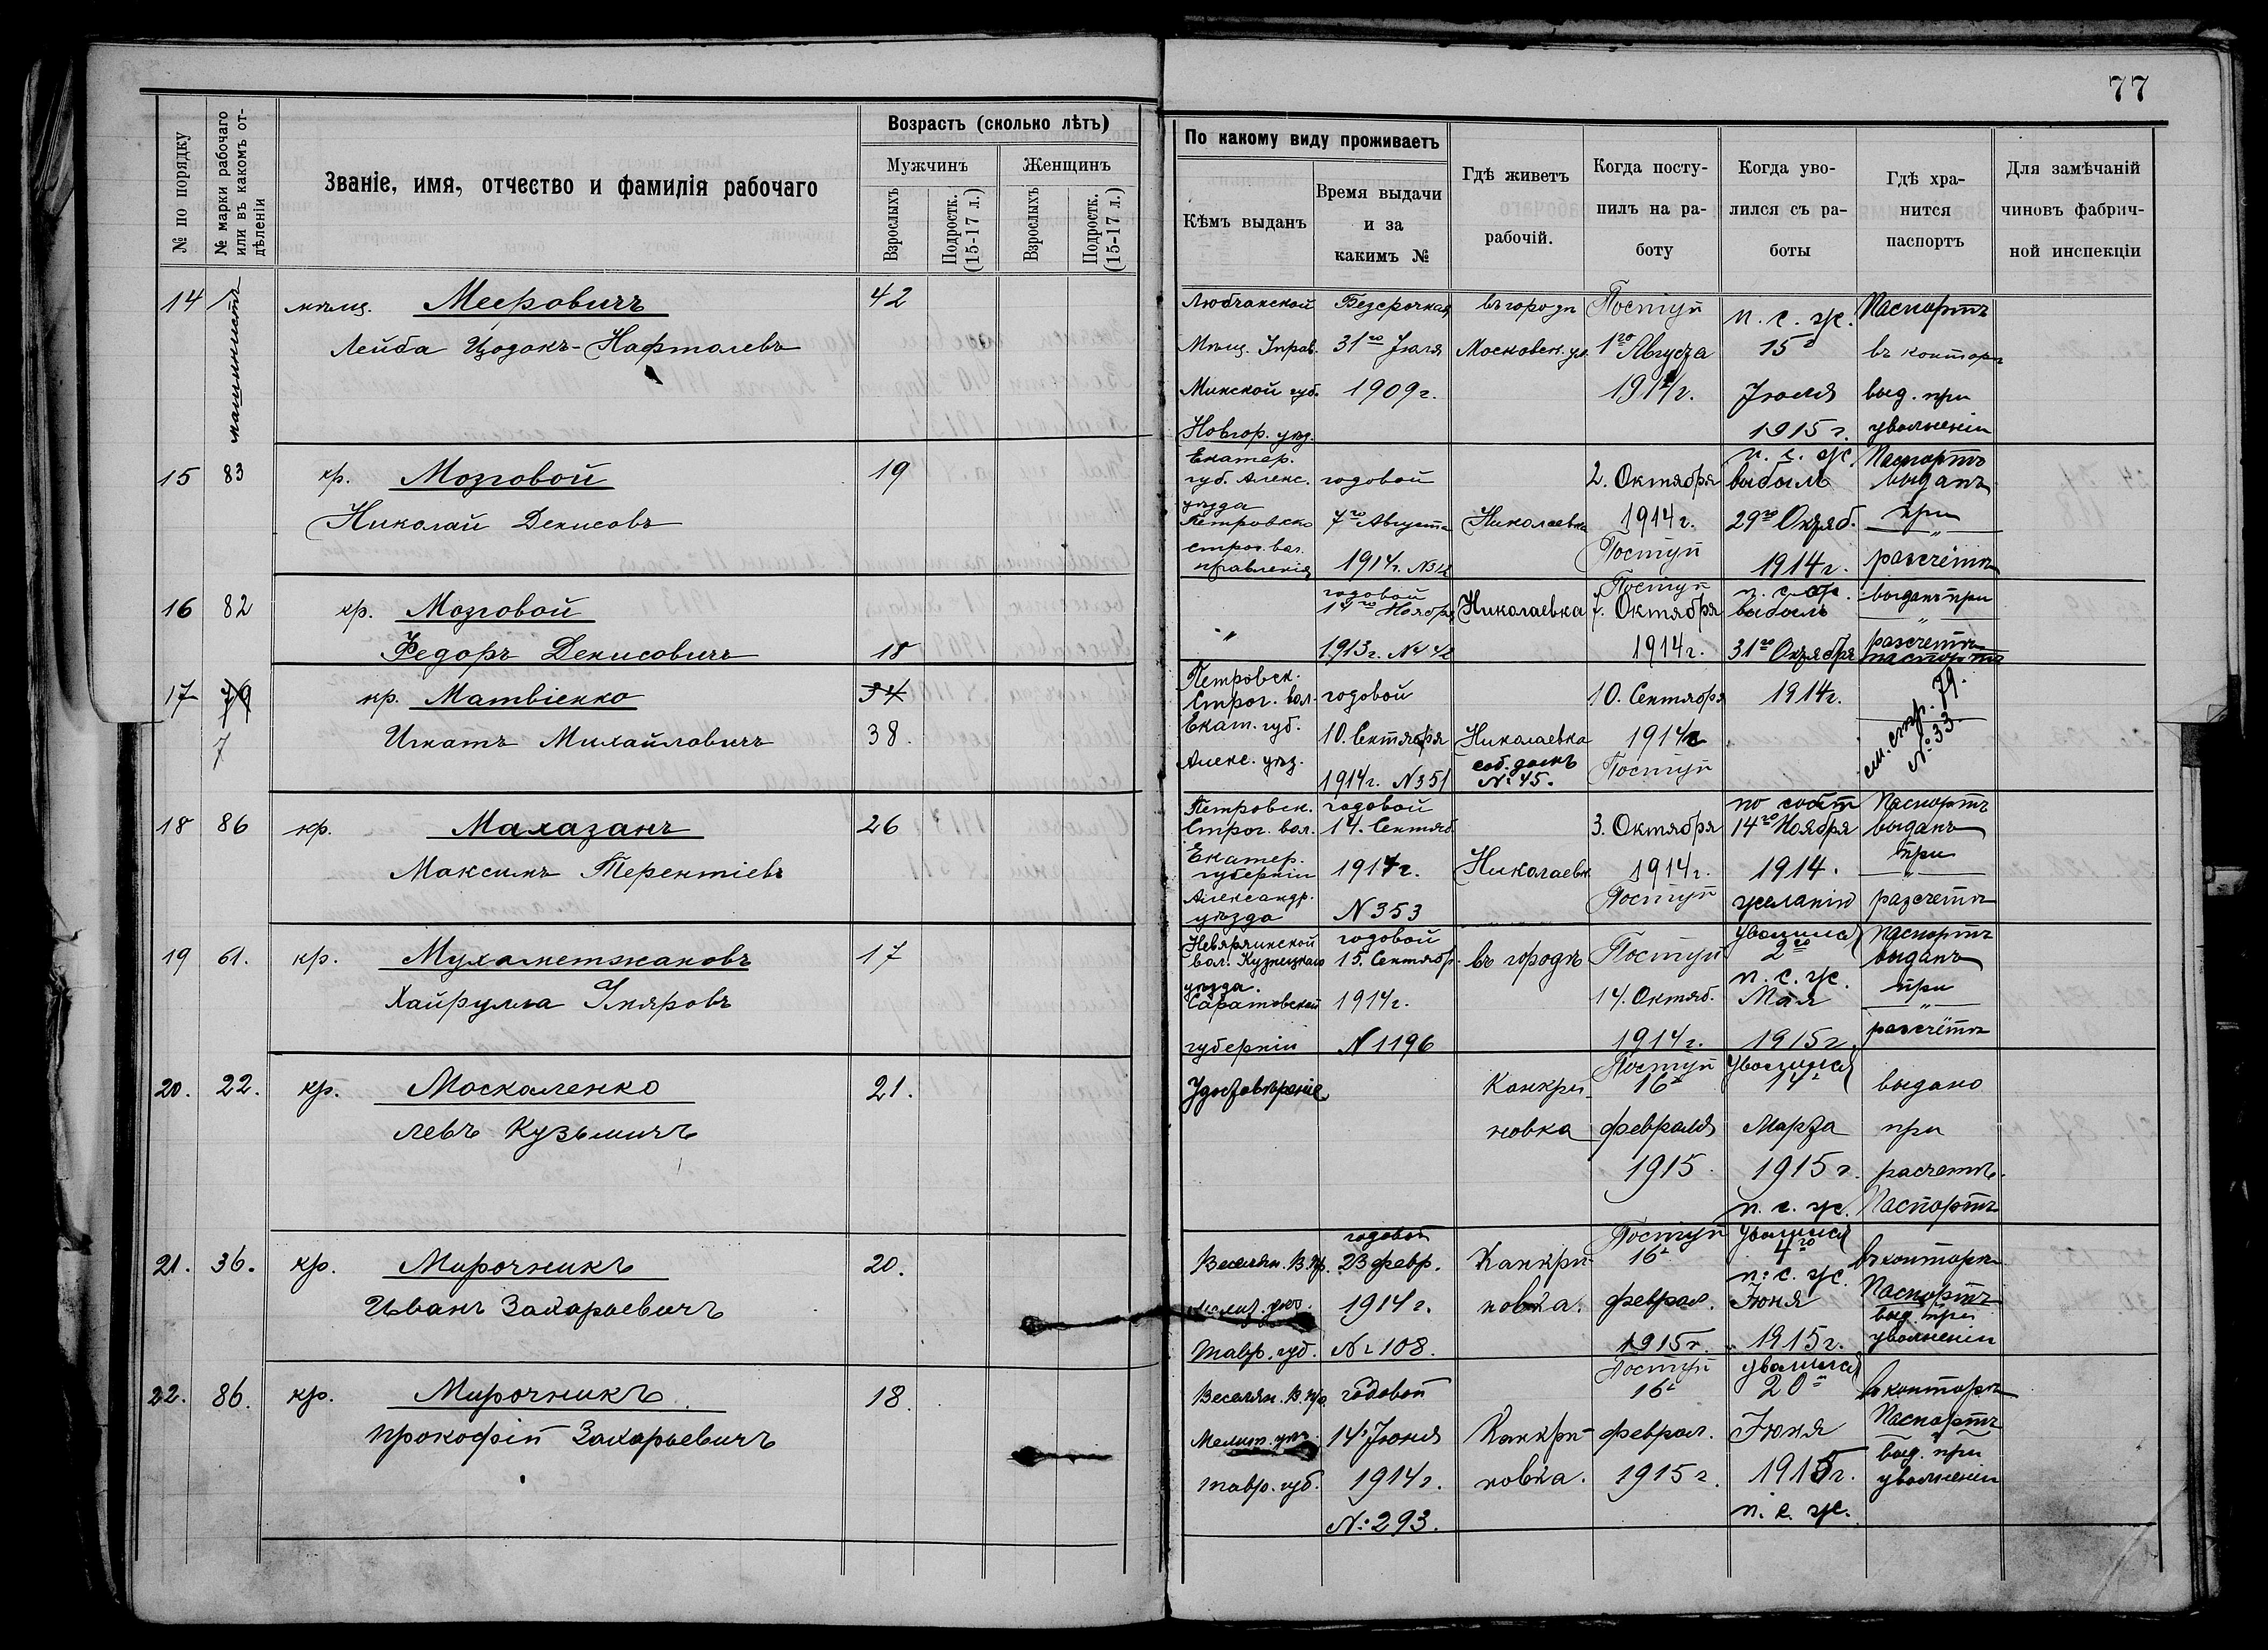 77
№ по порядку
№ марки рабочаго или въ какомъ отдѣленіи
Званіе, имя, отчество и фамилія рабочаго
Возрастъ (сколько лѣтъ)
Мужчинъ
Женщинъ
Взрослыхъ
Подростк. (15-17 л.)
Взрослыхъ
Подростк. (15-17 л.)
По какому виду проживаетъ
Кѣмъ выданъ
Время выдачи и за какимъ №
Гдѣ живетъ рабочій.
Когда поступилъ на работу
Когда уволился съ работы
Гдѣ хранится паспортъ
Для замѣчаній чиновъ фабричной инспекціи
14 машинистъ мѣщ. Мееровичъ 42
Лейба Цодокъ-Нафталевъ
Любчанской Безсрочная въ городѣ Поступ п. с. ж. Паспортъ
Мѣщ. Управ. 31го Іюля Московск. ул. 1го Августа 15г въ конторѣ
Минской губ. 1909 г. 1914 г. Іюля выд. при
Новгор. уѣзд. 1915 г. увольненіи
15 83 кр. Мозговой 19
Николай Денисовъ
Екатер. п. с. ж. Паспортъ
губ. Алекс. годовой 2. Октября выбылъ выданъ
уѣзда
Петровско 7го Августа Николаевка 1914 г. 29го Октяб. при
строг. вол. Поступ
правленія 1914 г. 1914 г. разсчётѣ
16 82 кр. Мозговой
Федоръ Денисовичъ 18
годовой Поступ п. с. ж.
17го Ноября Николаевка 7. Октября выбылъ выданъ при
" 1913 г. 1914 г. 31го Октября разсчетѣ
паспортъ
17 79 кр. Матвіенко 34
7 Игнатъ Михайловичъ 38.
Петровск.
Строг. вол. годовой 10. Сентября 1914 г.
Екат. губ. 10. Сентября Николаевка 1914 г
Алекс. уѣз. соб. домъ Поступ
1914 г. N351 № 45.
см. стр. 79.
№ 33.
18 86 кр. Малазанъ 26
Максимъ Терентіевъ
Петровск. годовой по собст Паспортъ
Строг. вол. 14. Сентяб 3. Октября 14го Ноября выданъ
Екатер. при
губерніи 1914 г. Николаевк 1914 г. 1914.
Александр. Поступ
уѣзда N353 желанію разсчетѣ
19 61. кр. Мухаметжановъ 17
Хайрулла Умяровъ
годовой уволился Паспортъ
вол. Кузнецкаго 15. Сентябр. въ городѣ Поступ 2го выданъ
уѣзда. п. с. ж.
Саратовской 1914 г. 14. Октяб. Мая при
губерніи N1196 1914 г. 1915 г. разсчётѣ
20. 22. кр. Москаленко 21.
Левъ Кузьмичъ
Поступ Уволился
Удостовѣреніе Канкри- 16г 14г выдано
новка февраля Марта при
1915 1915 г. расчетѣ.
п. с. ж. Паспортъ
21. 36. кр. Мирочникъ 20.
Иванъ Захарьевичъ
годовой Поступ уволился
Веселян. В. Пр. 23 февр. Канкри- 16г 4го въ конторѣ
п. с. ж.
Мелит. уѣз. 1914 г. новка. феврал. Іюня Паспортъ
выд. при
Тавр. губ. № 108. 1915 г. 1915 г. увольненіи
22. 86. кр. Мирочникъ 18.
Прокофій Захарьевичъ
Поступ уволился
Веселян. В. Пр. годовой 16г 20го въ конторѣ
Мелит. уѣз. 14 Іюня Канкри- феврал. Іюня Паспортъ
выд. при
Тавр. губ. 1914 г. новка. 1915 г. 1915 г. увольненіи
№ 293. п. с. ж.